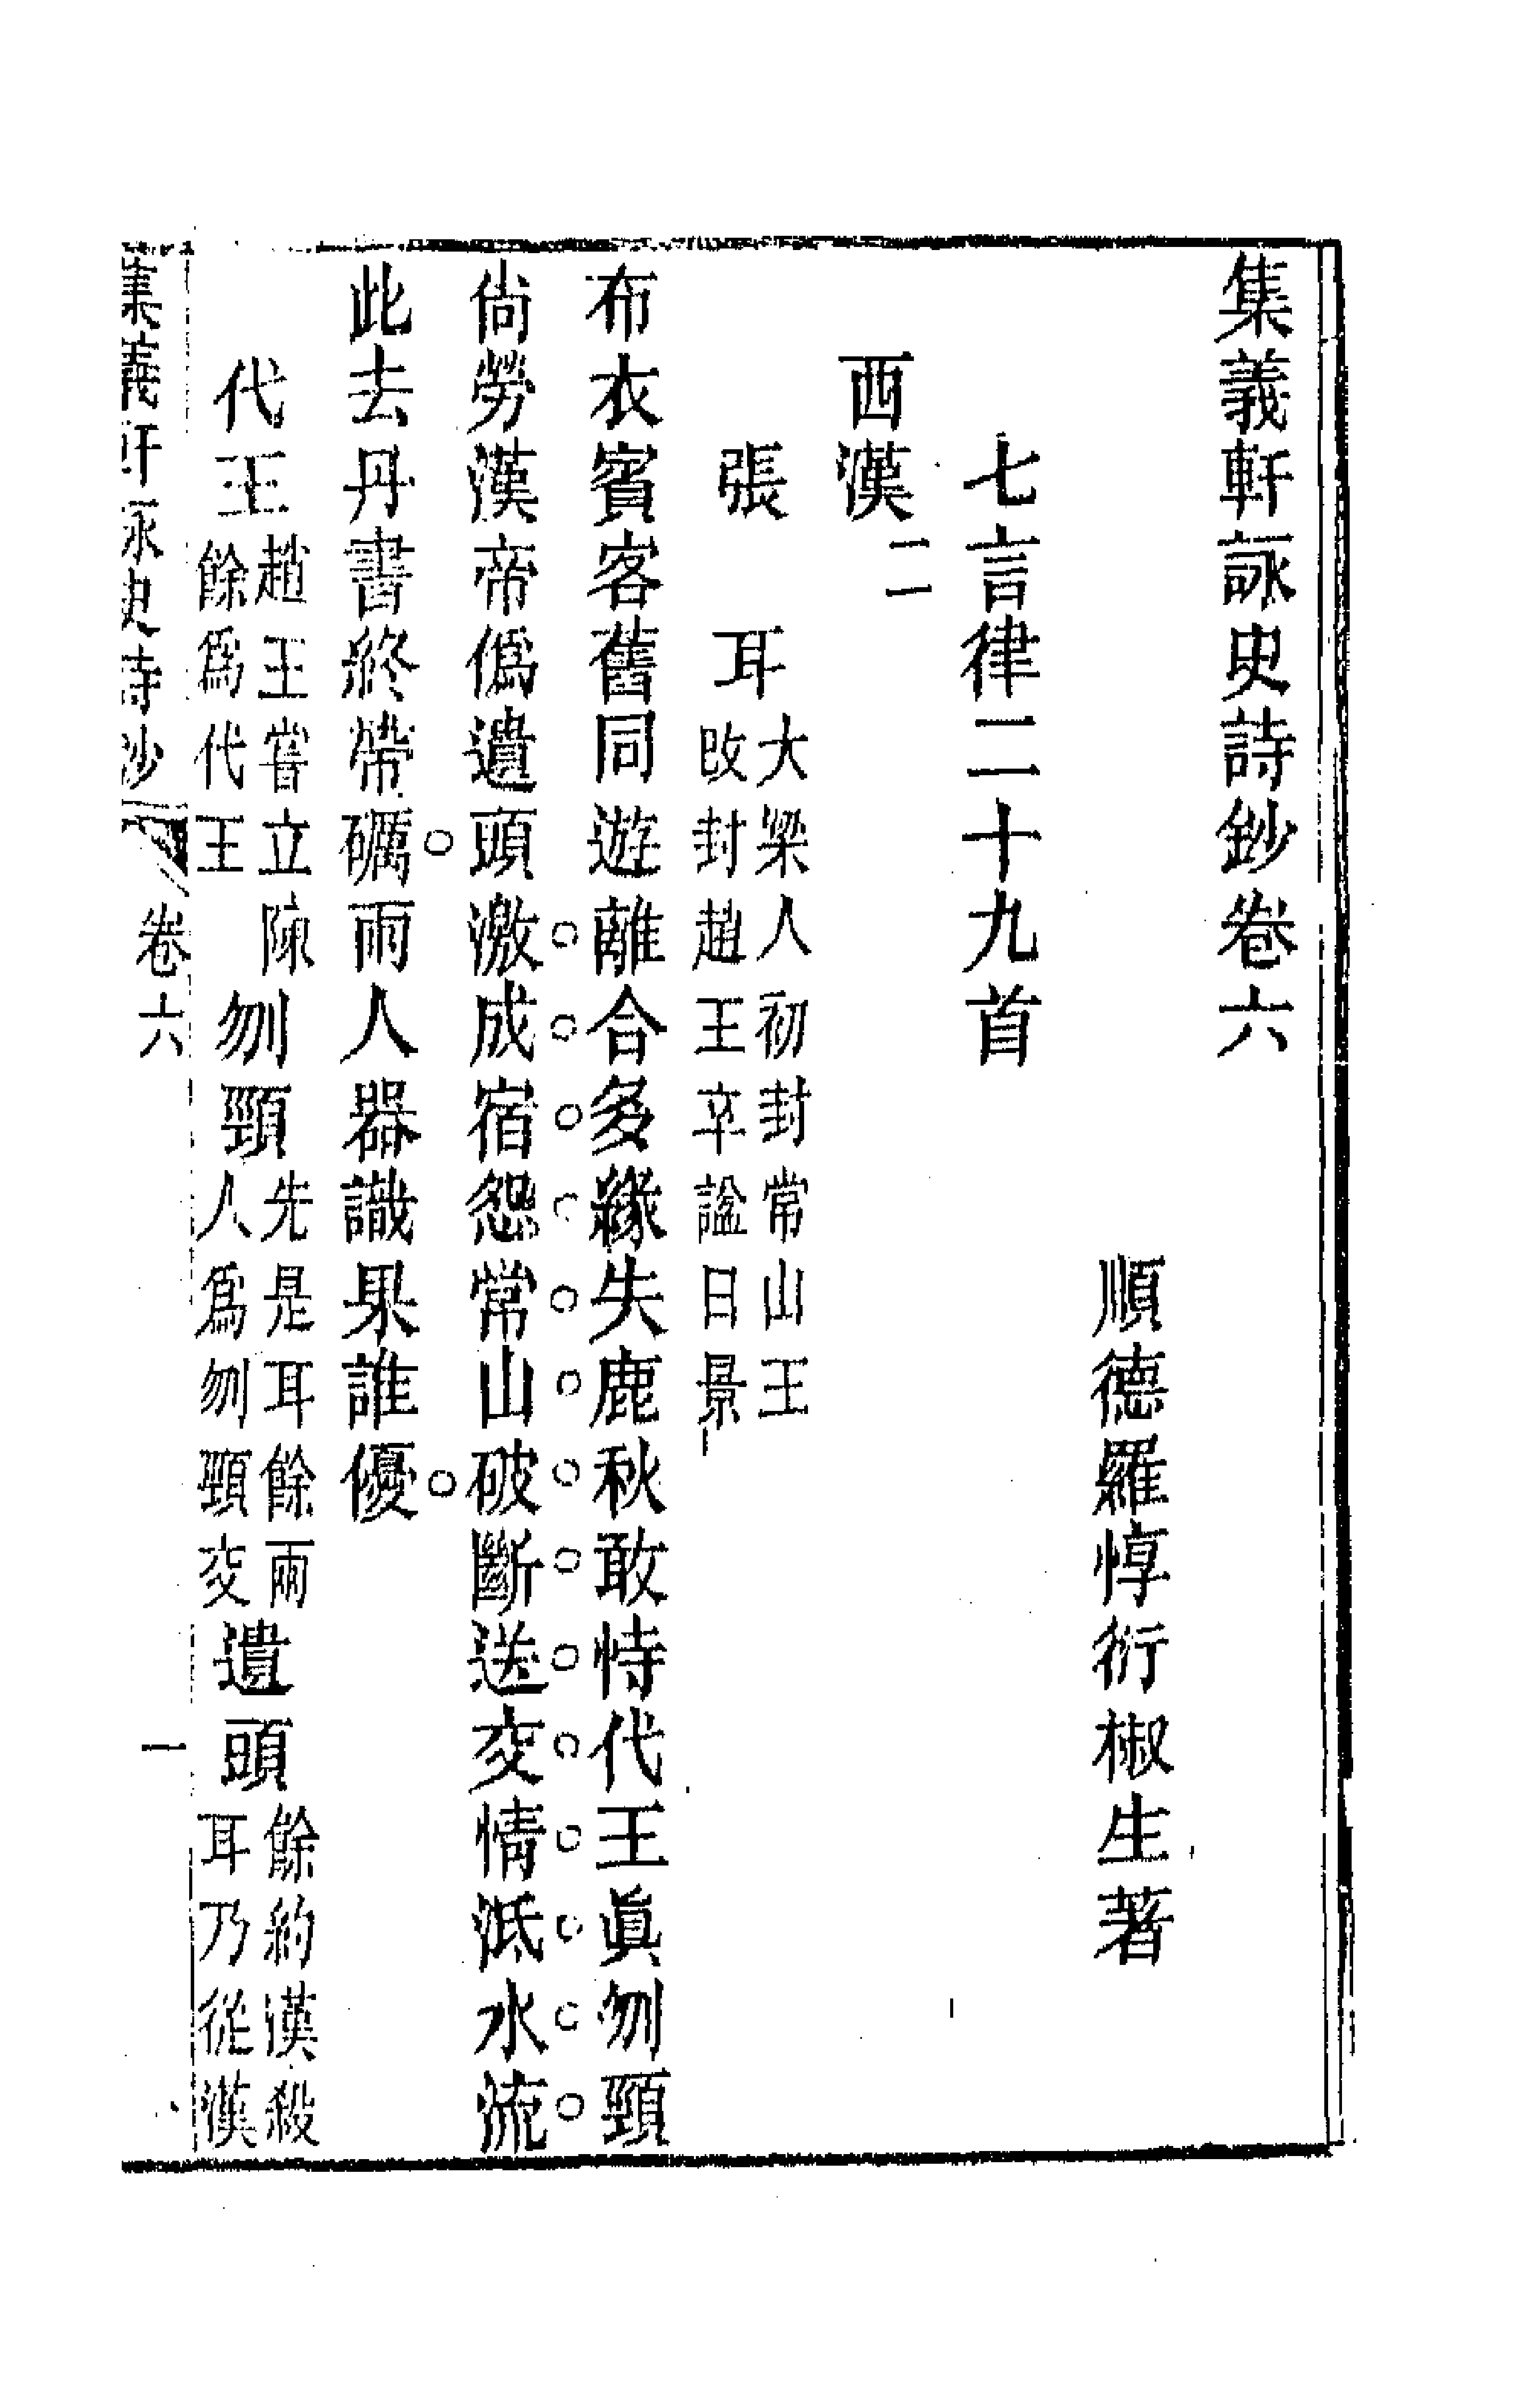 集義軒詠史詩鈔卷六
順德羅惇衍椒生著
七言律二十九首
西漢二
張耳大梁人初封常山王
改封趙王卒諡曰景
布衣賓客舊同遊離合多緣失鹿秋敢恃代王眞刎頸
尙勞漢帝僞遺頭激成宿怨常山破斷送交情泜水流
此去丹書終帶礪兩人器識果誰優
代王趙王嘗立陳
餘爲代王
刎頸先是耳餘兩
人爲刎頸交
遺頭餘約漢殺
耳乃從漢
集義軒詠史詩鈔
卷六
一